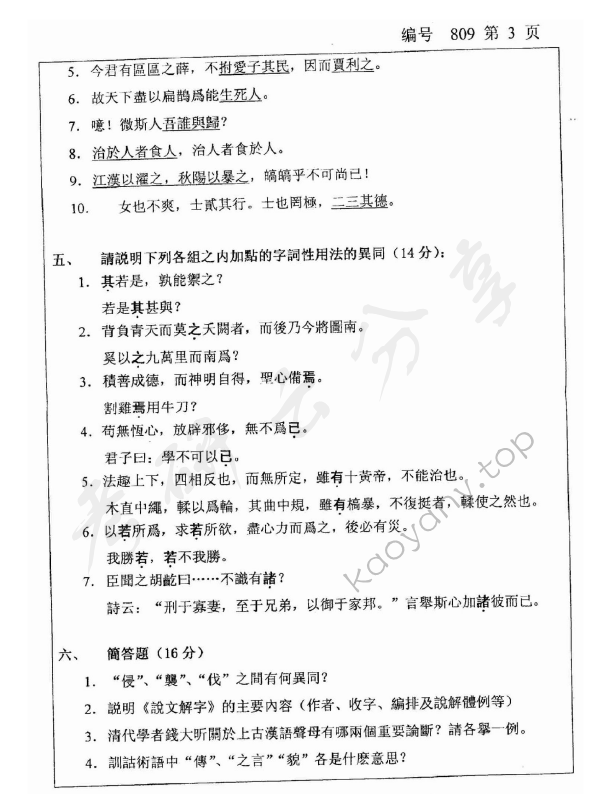 编号 809 第 3 页
5. 今君有區區之薛，不拊愛子其民，因而賈利之。
6. 故天下盡以扁鵲爲能生死人。
7. 噫！微斯人吾誰與歸？
8. 治於人者食人，治人者食於人。
9. 江漢以濯之，秋陽以暴之，皜皜乎不可尚已！
10. 女也不爽，士貳其行。士也罔極，二三其德。
五、 請説明下列各組之内加點的字詞性用法的異同（14 分）：
1. 其若是，孰能禦之？
若是其甚與？
2. 背負青天而莫之夭閼者，而後乃今將圖南。
奚以之九萬里而南爲？
3. 積善成德，而神明自得，聖心備焉。
割雞焉用牛刀？
4. 苟無恆心，放辟邪侈，無不爲已。
君子曰：學不可以已。
5. 法趣上下，四相反也，而無所定，雖有十黃帝，不能治也。
木直中繩，輮以爲輪，其曲中規，雖有槁暴，不復挺者，輮使之然也。
6. 以若所爲，求若所欲，盡心力而爲之，後必有災。
我勝若，若不我勝。
7. 臣聞之胡齕曰……不識有諸？
詩云：“刑于寡妻，至于兄弟，以御于家邦。”言舉斯心加諸彼而已。
六、 簡答題（16 分）
1. “侵”、“襲”、“伐”之間有何異同？
2. 説明《説文解字》的主要内容（作者、收字、編排及説解體例等）
3. 清代學者錢大昕關於上古漢語聲母有哪兩個重要論斷？請各舉一例。
4. 訓詁術語中“傳”、“之言”“貌”各是什麽意思？
考研云分享
kaoyany.top